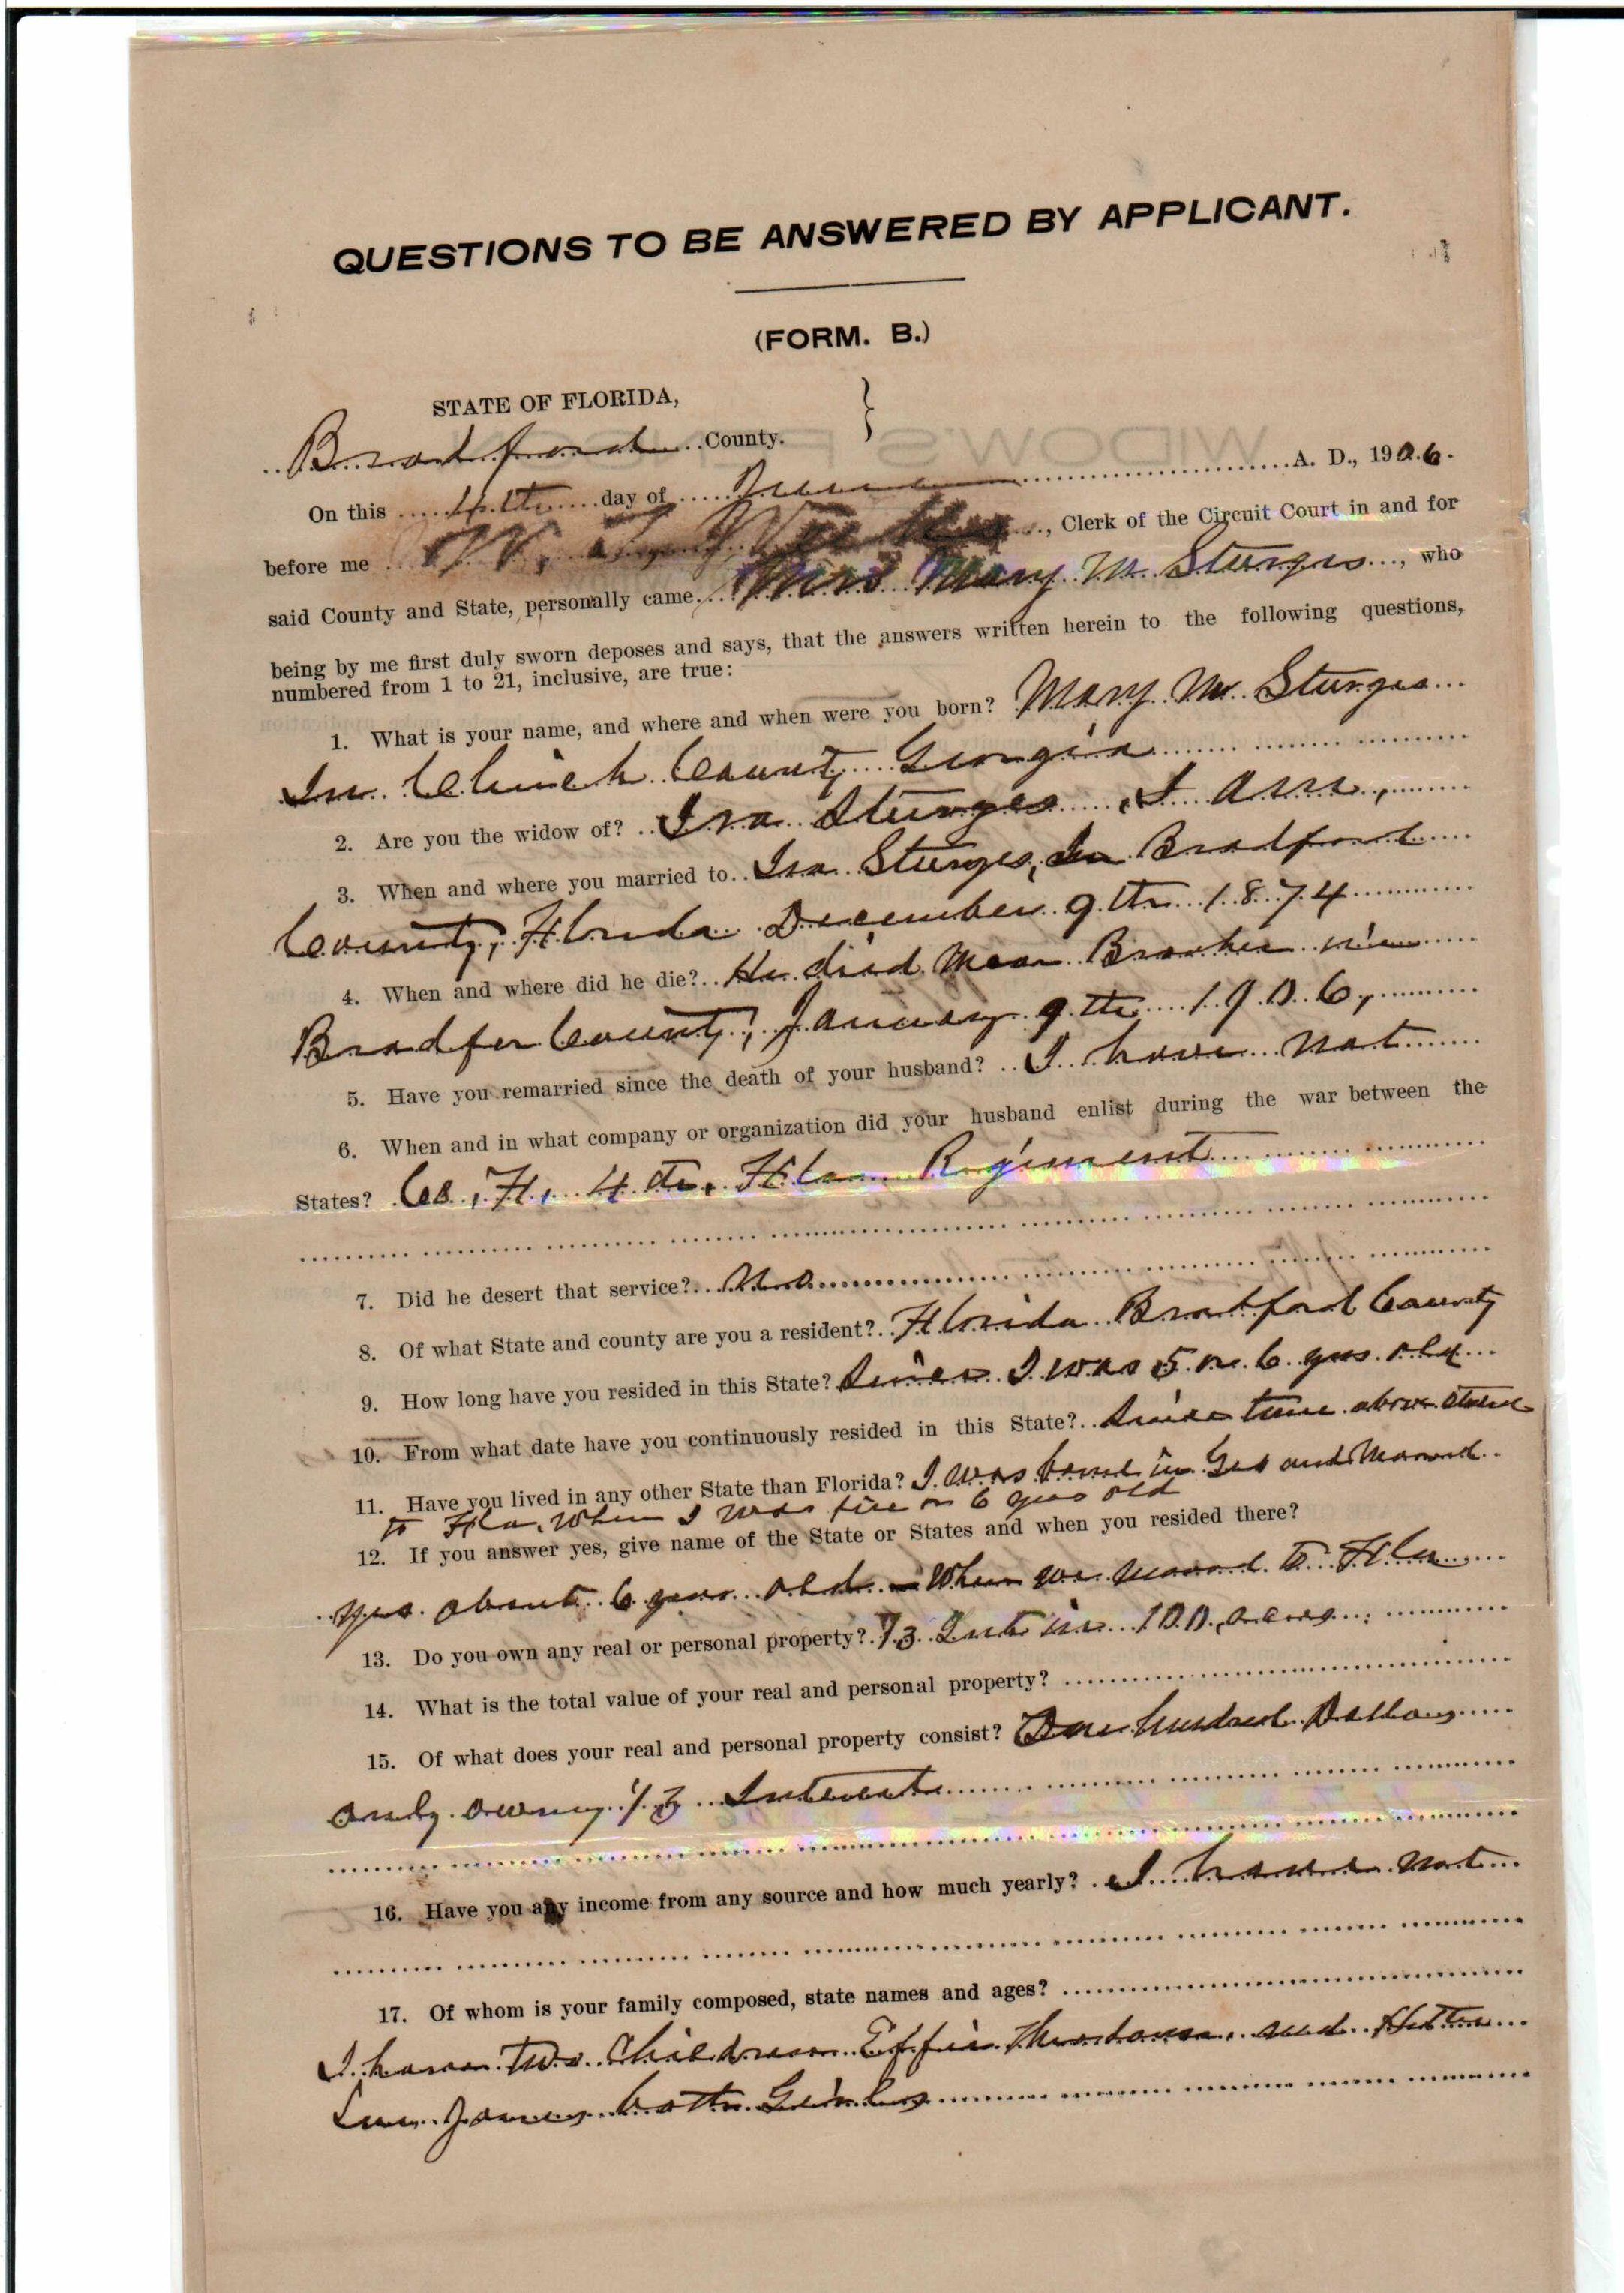 QUESTIONS TO BE ANSWERED BY APPLICANT.
(FORM. B.)
STATE OF FLORIDA,
Bradford County.
On this 4th day of June A. D., 1906.
before me W. , Clerk of the Circuit Court in and for
said County and State, personally came Mrs Mary M Sturges, who
being by me first duly sworn deposes and says, that the answers written herein to the following questions,
numbered from 1 to 21, inclusive, are true:
1. What is your name, and where and when were you born? Mary M. Sturges
In Clinch County Georgia
2. Are you the widow of? Ira Sturges, I am,
3. When and where you married to Ira Sturges, In Bradford
County, Florida December 9th 1874
4. When and where did he die? He died Near Brooker in
Bradfor County, January 9th 1906,
5. Have you remarried since the death of your husband? I have not
6. When and in what company or organization did your husband enlist during the war between the
States? Co, H, 4th, Fla Regiment
7. Did he desert that service? No
8. Of what State and county are you a resident? Florida Bradford County
9. How long have you resided in this State? Since I was 5 or 6 yrs old
10. From what date have you continuously resided in this State? Since time above stated
11. Have you lived in any other State than Florida? I was born in Geo and Moved
to Fla, When I was five or 6 years old
12. If you answer yes, give name of the State or States and when you resided there?
yes about 6 years old - When we moved to Fla
13. Do you own any real or personal property? 1/3 Int in 100, acres
14. What is the total value of your real and personal property?
15. Of what does your real and personal property consist? One hundred Dollars
only owning 1/3 Interest
16. Have you any income from any source and how much yearly? I have not
17. Of whom is your family composed, state names and ages?
I have Two Children Effie and Hettie
Jones both Girls